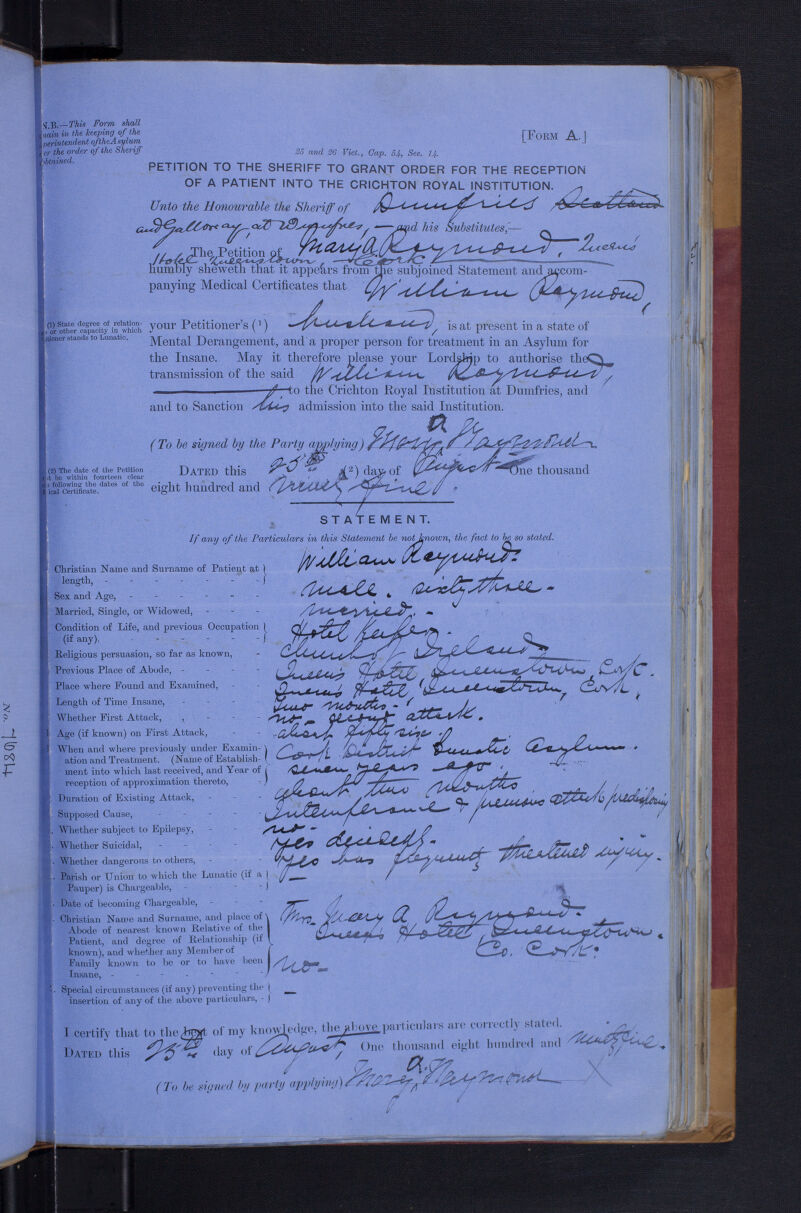 N.B.—This Form shall
main in the keeping of the
perintendent of the Asylum
er the order of the Sheriff
obtained.
[FORM A.]
25 and 26 Vict., Cap. 54, Sec. 14.
PETITION TO THE SHERIFF TO GRANT ORDER FOR THE RECEPTION
OF A PATIENT INTO THE CRICHTON ROYAL INSTITUTION.
Unto the Honourable the Sheriff of Dumfries Scotland
and Galloway, at Dumfries, — and his Substitutes,—
The Petition of Mary A Raymond, Queens
Hotel Queenstown, Cork
humbly sheweth that it appears from the subjoined Statement and accom-
panying Medical Certificates that William Raymond,
(1) State degree of relation-
or other capacity in which
itioner stands to Lunatic.
your Petitioner's (1) husband, is at present in a state of
Mental Derangement, and a proper person for treatment in an Asylum for
the Insane. May it therefore please your Lordship to authorise the
transmission of the said William Raymond,
to the Crichton Royal Institution at Dumfries, and
and to Sanction his admission into the said Institution.
(To be signed by the Party applying) Mary A Raymond
(2) The date of the Petition
st be within fourteen clear
s following the dates of the
ical Certificate.
DATED this 25th (2) day of August One thousand
eight hundred and ninety five.
STATEMENT.
If any of the Particulars in this Statement be not known, the fact to be so stated.
Christian Name and Surname of Patient at length, - William Raymond.
Sex and Age, - Male. sixty three -
Married, Single, or Widowed, - married. -
Condition of Life, and previous Occupation (if any). Hotel Keeper.
Religious persuasion, so far as known, - Church of Ireland
Previous Place of Abode, - Queen's Hotel, Queenstown, Cork.
Place where Found and Examined, Queens Hotel, Queenstown, Cork.
Length of Time Insane, - Two months -
Whether First Attack, - no - second attack.
Age (if known) on First Attack, about fifty six.
When and where previously under Examin-
ation and Treatment. (Name of Establish-
ment into which last received, and Year of
reception of approximation thereto, -
Cork District Lunatic Asylum.
seven years ago.
Duration of Existing Attack, - about two months
Supposed Cause, - Intemperance & previous attack predisposing
Whether subject to Epilepsy, - no -
Whether Suicidal, - yes decidedly.
Whether dangerous to others, - yes has frequently threatened injury.
Parish or Union to which the Lunatic (if a
Pauper) is Chargeable, - —
Date of becoming Chargeable, -
Christian Name and Surname, and place of
Abode of nearest known Relative of the
Patient, and degree of Relationship (if
known), and whether any Member of
Family known to be or to have been
Insane, -
Mrs. Mary A Raymond.
Queen's Hotel Queenstown.
Co. Cork.
No -
Special circumstances (if any) preventing the
insertion of any of the above particulars, - —
I certify that to the best of my knowledge, the above particulars are correctly stated.
DATED this 25th day of August, One thousand eight hundred and ninety five.
(To be signed by party applying) Mary A. Raymond X